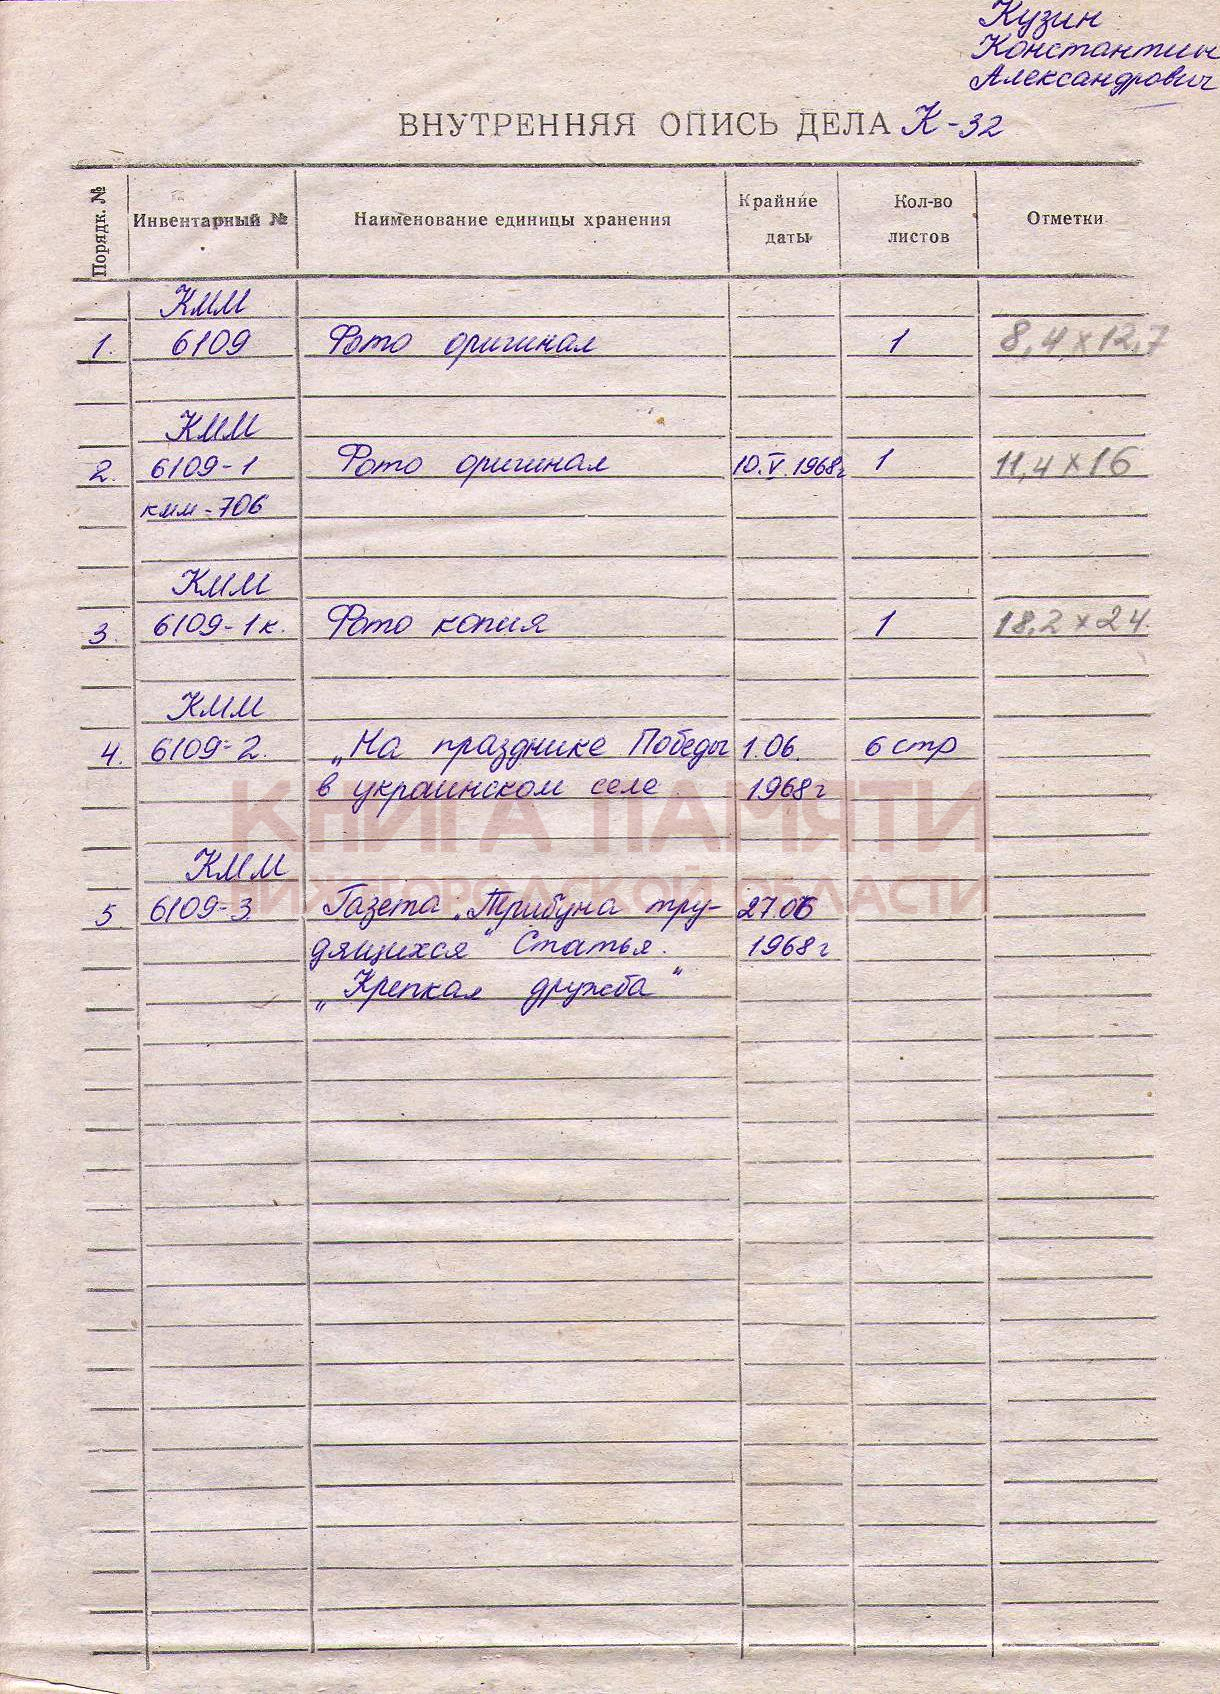 Кузин
Константин
Александрович
ВНУТРЕННЯЯ ОПИСЬ ДЕЛА К-32
Порядк. № Инвентарный № Наименование единицы хранения Крайние даты Кол-во листов Отметки
КММ
1. 6109 Фото оригинал 1 8,4 х 12,7
КММ
2. 6109-1 Фото оригинал 10.V.1968г 1 11,4 х 16
кмм-706
КММ
3. 6109-1к. Фото копия 1 18,2 х 24.
КММ
4. 6109-2. „На празднике Победы 1.06. 6 стр
в украинском селе 1968г
КНИГА ПАМЯТИ
КММ
НИЖЕГОРОДСКОЙ ОБЛАСТИ
5 6109-3 Газета „Трибуна тру- 27.06
дящихся" Статья. 1968г
„Крепкая дружба"